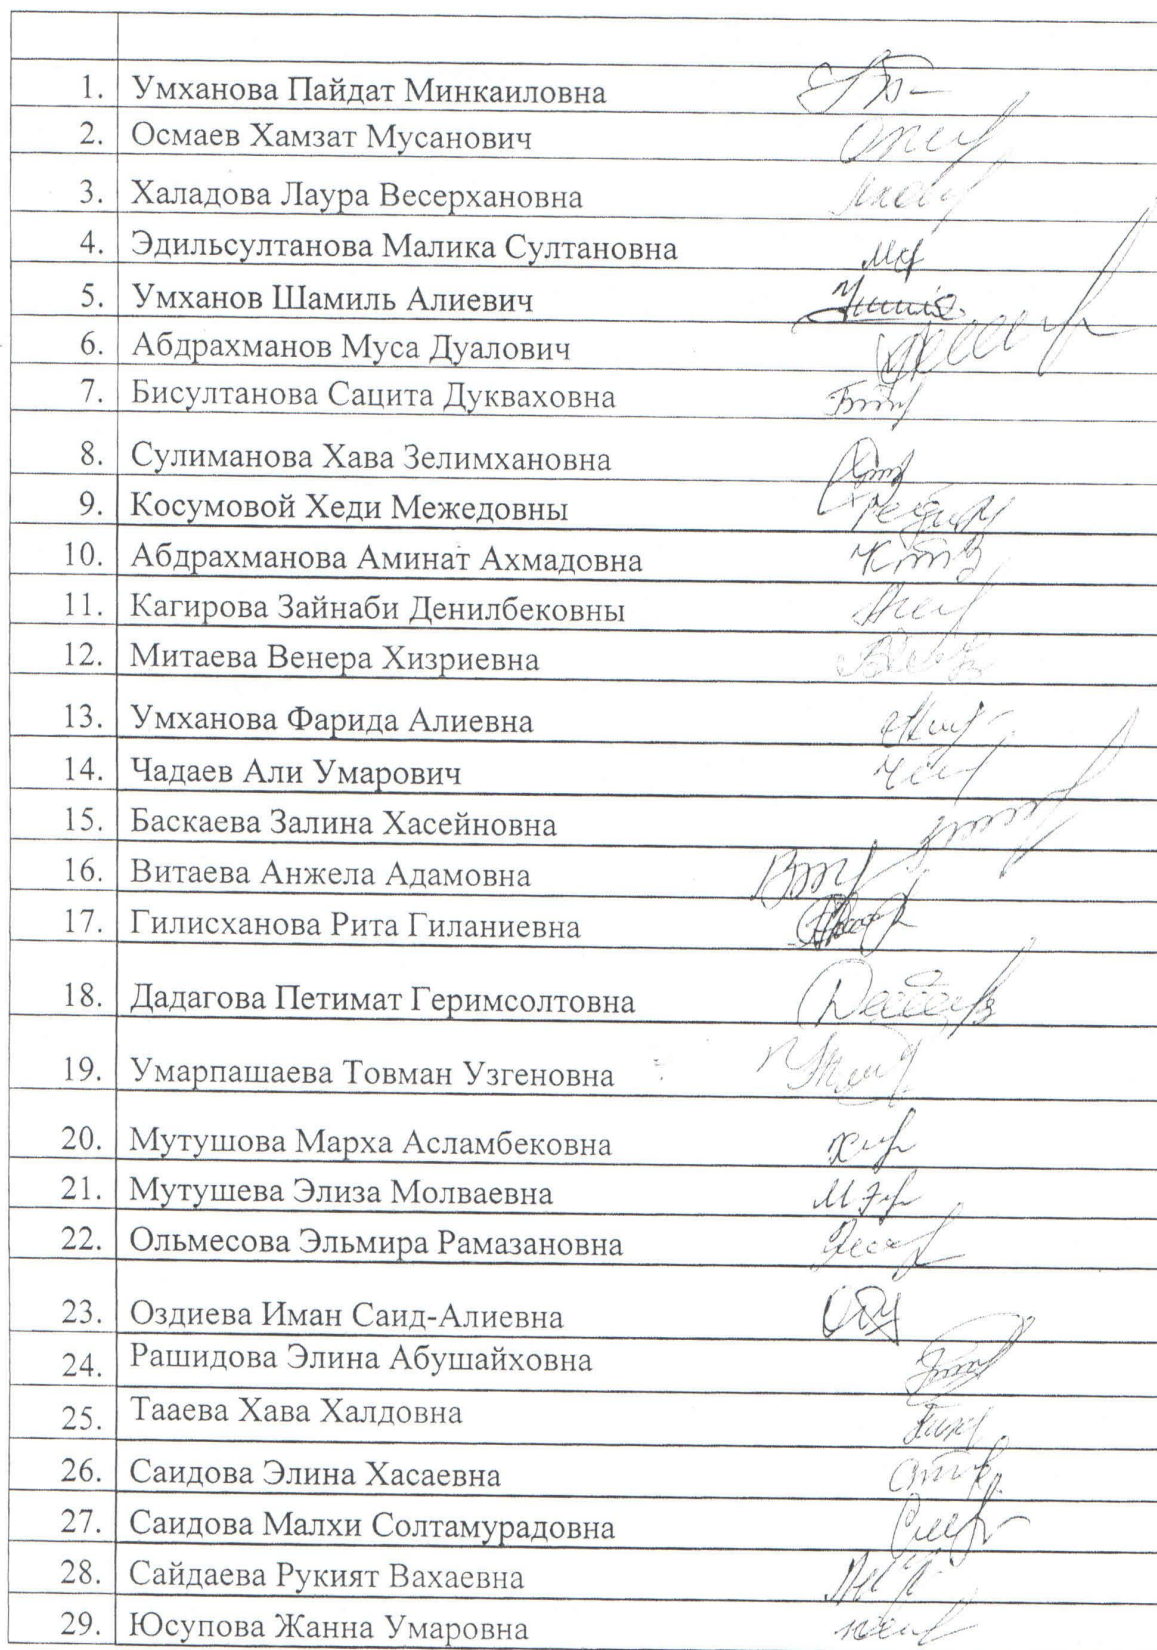 1. Умханова Пайдат Минкаиловна
2. Осмаев Хамзат Мусанович
3. Халадова Лаура Весерхановна
4. Эдильсултанова Малика Султановна
5. Умханов Шамиль Алиевич
6. Абдрахманов Муса Дуалович
7. Бисултанова Сацита Дукваховна
8. Сулиманова Хава Зелимхановна
9. Косумовой Хеди Межедовны
10. Абдрахманова Аминат Ахмадовна
11. Кагирова Зайнаби Денилбековны
12. Митаева Венера Хизриевна
13. Умханова Фарида Алиевна
14. Чадаев Али Умарович
15. Баскаева Залина Хасейновна
16. Витаева Анжела Адамовна
17. Гилисханова Рита Гиланиевна
18. Дадагова Петимат Геримсолтовна
19. Умарпашаева Товман Узгеновна
20. Мутушова Марха Асламбековна
21. Мутушева Элиза Молваевна
22. Ольмесова Эльмира Рамазановна
23. Оздиева Иман Саид-Алиевна
24. Рашидова Элина Абушайховна
25. Тааева Хава Халдовна
26. Саидова Элина Хасаевна
27. Саидова Малхи Солтамурадовна
28. Сайдаева Рукият Вахаевна
29. Юсупова Жанна Умаровна